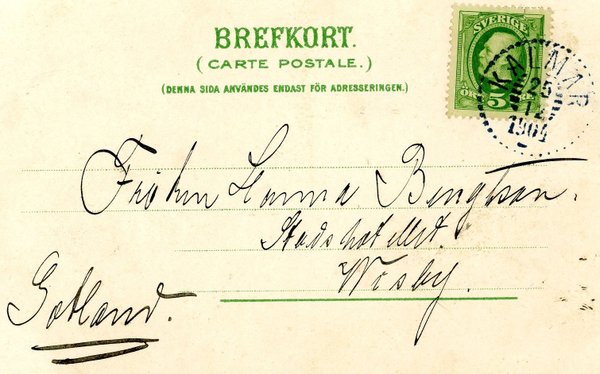 BREFKORT.
(CARTE POSTALE.)
(DENNA SIDA ANVÄNDES ENDAST FÖR ADRESSERINGEN.)
SVERIGE
5
ÖRE
KALMAR
25
12
1904
Fröken Hanna Bengtson.
Stadshotellet.
Wisby.
Gotland.